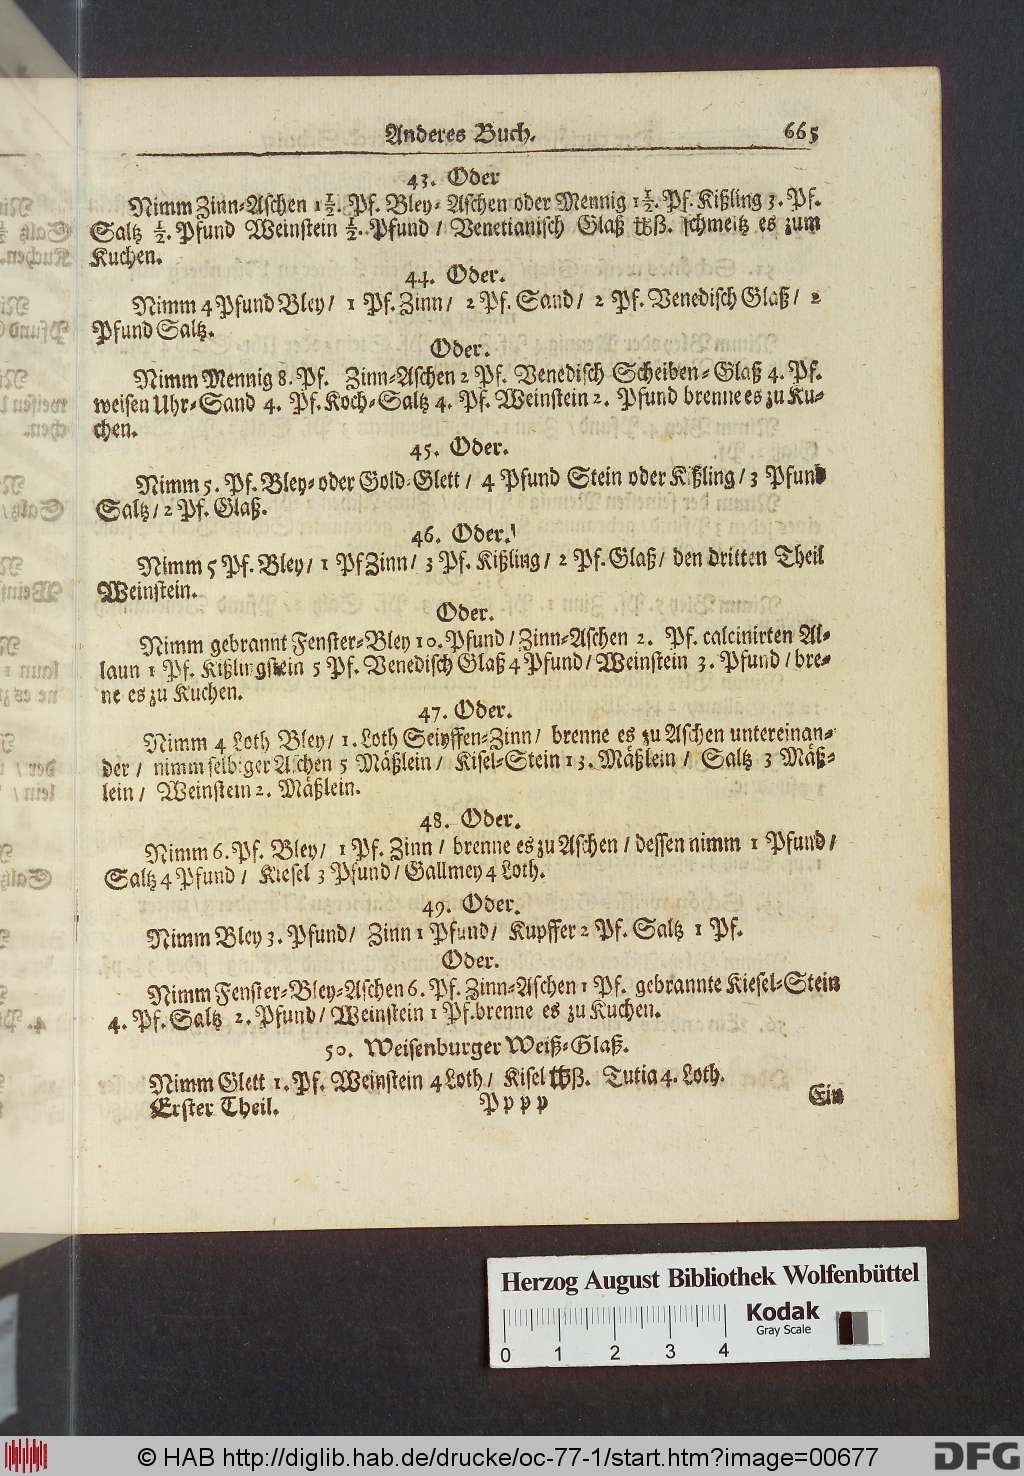 Anderes Buch. 665
43. Oder
Nimm Zinn-Aschen 1½. Pf. Bley-Aschen oder Mennig 1½. Pf. Kißling 3. Pf.
Saltz ½. Pfund Weinstein ½. Pfund / Venetianisch Glaß ℔ß. schmeltz es zum
Kuchen.
44. Oder.
Nimm 4 Pfund Bley / 1 Pf. Zinn / 2 Pf. Sand / 2 Pf. Venedisch Glaß / 2
Pfund Saltz.
Oder.
Nimm Mennig 8. Pf. Zinn-Aschen 2 Pf. Venedisch Scheiben-Glaß 4. Pf.
weisen Uhr-Sand 4. Pf. Koch-Saltz 4. Pf. Weinstein 2. Pfund brenne es zu Ku-
chen.
45. Oder.
Nimm 5. Pf. Bley-oder Gold-Glett / 4 Pfund Stein oder Kißling / 3 Pfund
Saltz / 2 Pf. Glaß.
46. Oder.
Nimm 5 Pf. Bley / 1 Pf Zinn / 3 Pf. Kißling / 2 Pf. Glaß / den dritten Theil
Weinstein.
Oder.
Nimm gebrannt Fenster-Bley 10. Pfund / Zinn-Aschen 2. Pf. calcinirten Al-
laun 1 Pf. Kißlingstein 5 Pf. Venedisch Glaß 4 Pfund / Weinstein 3. Pfund / bre-
ne es zu Kuchen.
47. Oder.
Nimm 4 Loth Bley / 1. Loth Seiyffen-Zinn / brenne es zu Aschen untereinan-
der / nimm selbiger Aschen 5 Mäßlein / Kisel-Stein 13. Mäßlein / Saltz 3 Mäß-
lein / Weinstein 2. Mäßlein.
48. Oder.
Nimm 6. Pf. Bley / 1 Pf. Zinn / brenne es zu Aschen / dessen nimm 1 Pfund /
Saltz 4 Pfund / Kiesel 3 Pfund / Gallmey 4 Loth.
49. Oder.
Nimm Bley 3. Pfund / Zinn 1 Pfund / Kupffer 2 Pf. Saltz 1 Pf.
Oder.
Nimm Fenster-Bley-Aschen 6. Pf. Zinn-Aschen 1 Pf. gebrannte Kiesel-Stein
4. Pf. Saltz 2. Pfund / Weinstein 1 Pf. brenne es zu Kuchen.
50. Weisenburger Weiß-Glaß.
Nimm Glett 1. Pf. Weinstein 4 Loth / Kisel ℔ß. Tutia 4. Loth.
Erster Theil. Pppp Ein
Herzog August Bibliothek Wolfenbüttel
Kodak
Gray Scale
0 1 2 3 4
© HAB http://diglib.hab.de/drucke/oc-77-1/start.htm?image=00677 DFG